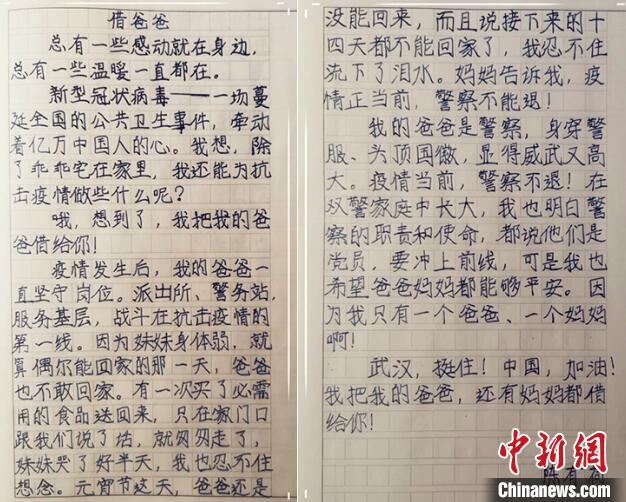 借爸爸
总有一些感动就在身边，
总有一些温暖一直都在。
新型冠状病毒——一场蔓
延全国的公共卫生事件，牵动
着亿万中国人的心。我想，除
了乖乖宅在家里，我还能为抗
击疫情做些什么呢？
哦，想到了，我把我的爸
爸借给你！
疫情发生后，我的爸爸一
直坚守岗位。派出所、警务站，
服务基层，战斗在抗击疫情的
第一线。因为妹妹身体弱，就
算偶尔能回家的那一天，爸爸
也不敢回家。有一次买了必需
用的食品送回来，只在家门口
跟我们说了话，就匆匆走了，
妹妹哭了好半天，我也忍不住
想念。元宵节这天，爸爸还是
没能回来，而且说接下来的十
四天都不能回家了，我忍不住
流下了泪水。妈妈告诉我，疫
情正当前，警察不能退！
我的爸爸是警察，身穿警
服、头顶国徽，显得威武又高
大。疫情当前，警察不退！在
双警家庭中长大，我也明白警
察的职责和使命，都说他们是
党员，要冲上前线，可是我也
希望爸爸妈妈都能够平安。因
为我只有一个爸爸、一个妈妈
啊！
武汉，挺住！中国，加油！
我把我的爸爸，还有妈妈都借
给你！
中新网
Chinanews.com